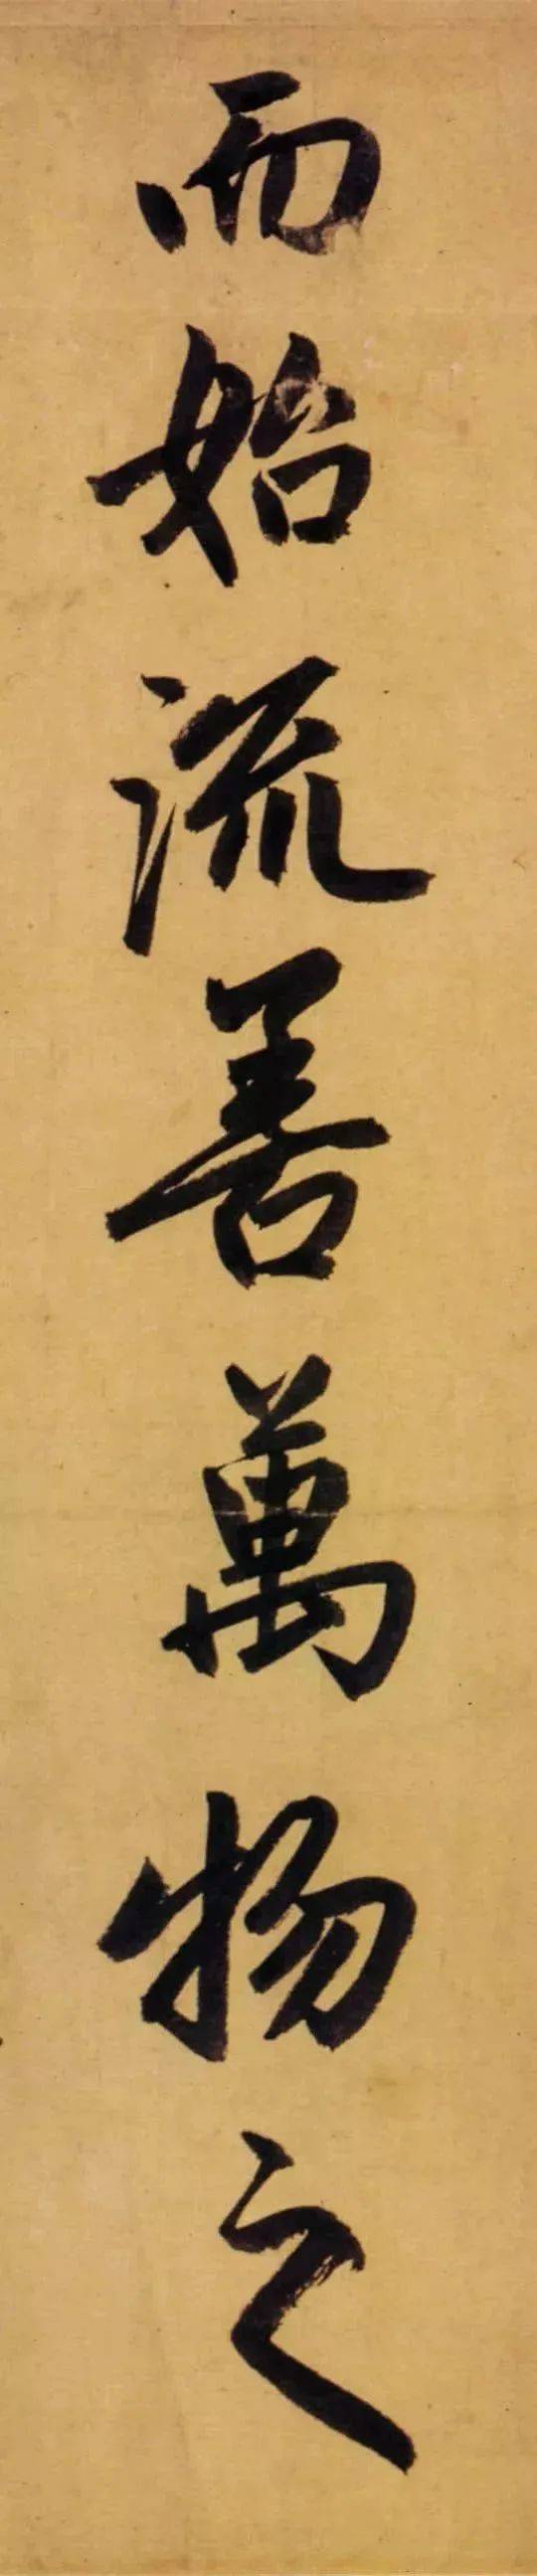 而始流善萬物之